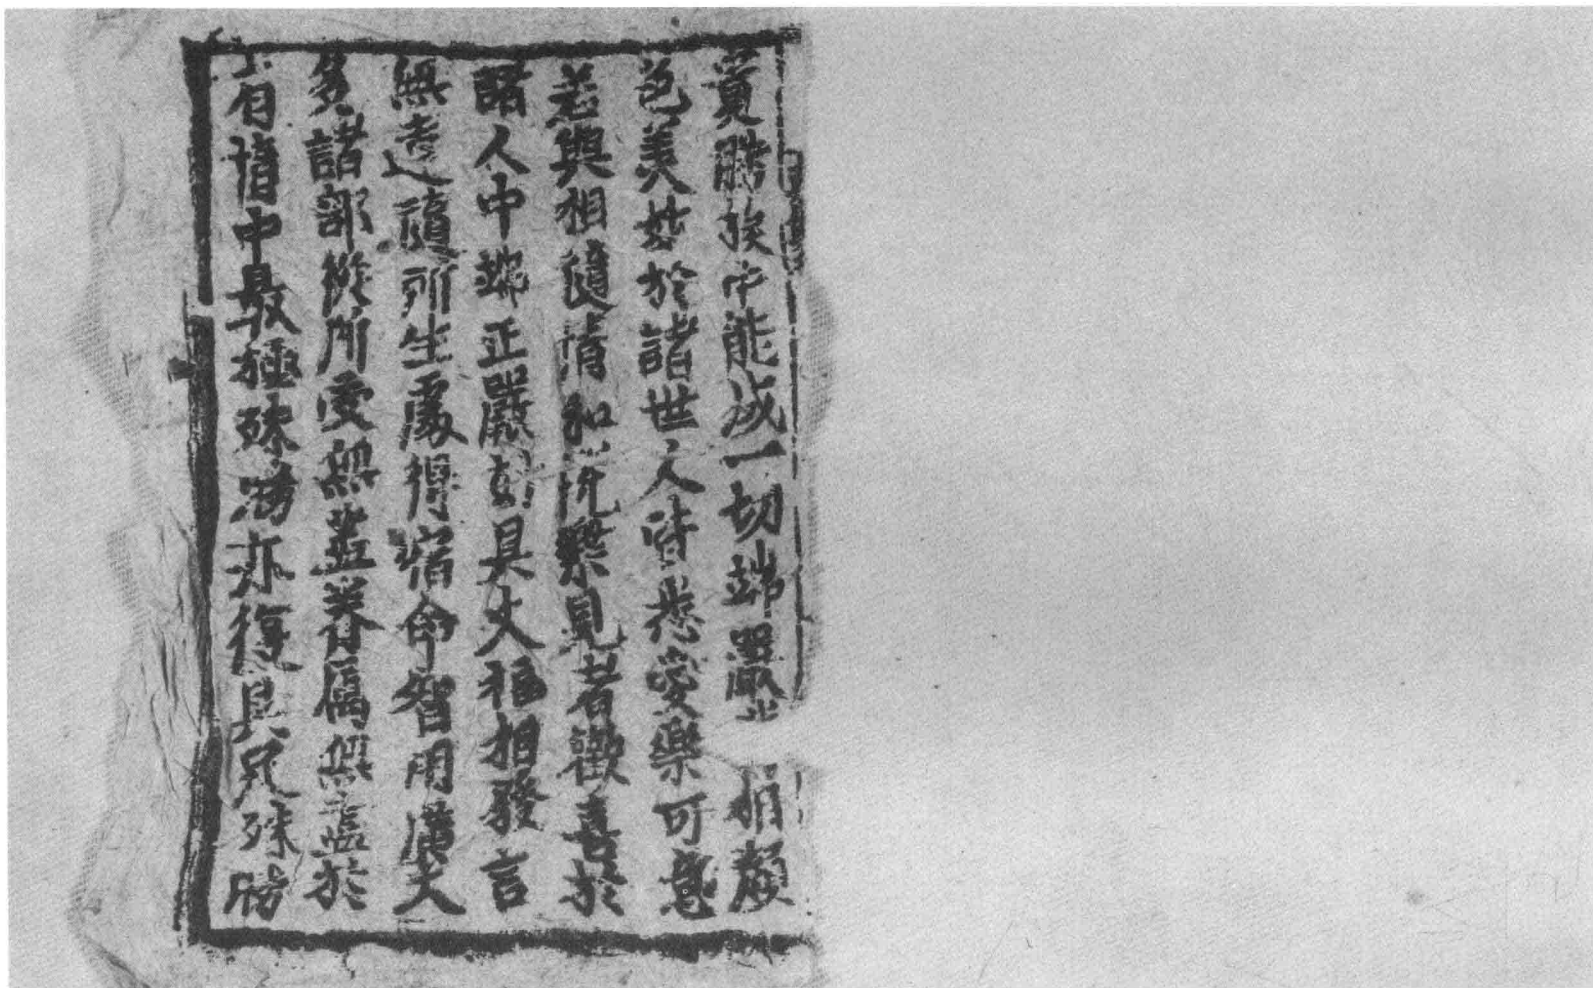 貴勝族中能成一切端嚴相顏
色美妙於諸世人皆悉愛樂可意
若與相隨清和悅繫見者歡喜於
諸人中端正嚴好具大福相發言
無違隨所生處得宿命智用廣大
多諸部從所受無盡眷屬無盡於
有情中最極殊勝亦復具足殊勝